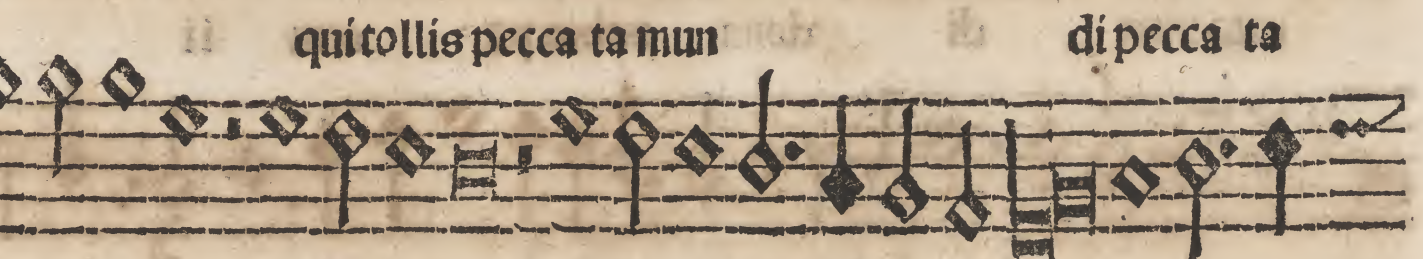 qui tollis pecca ta mun di pecca ta